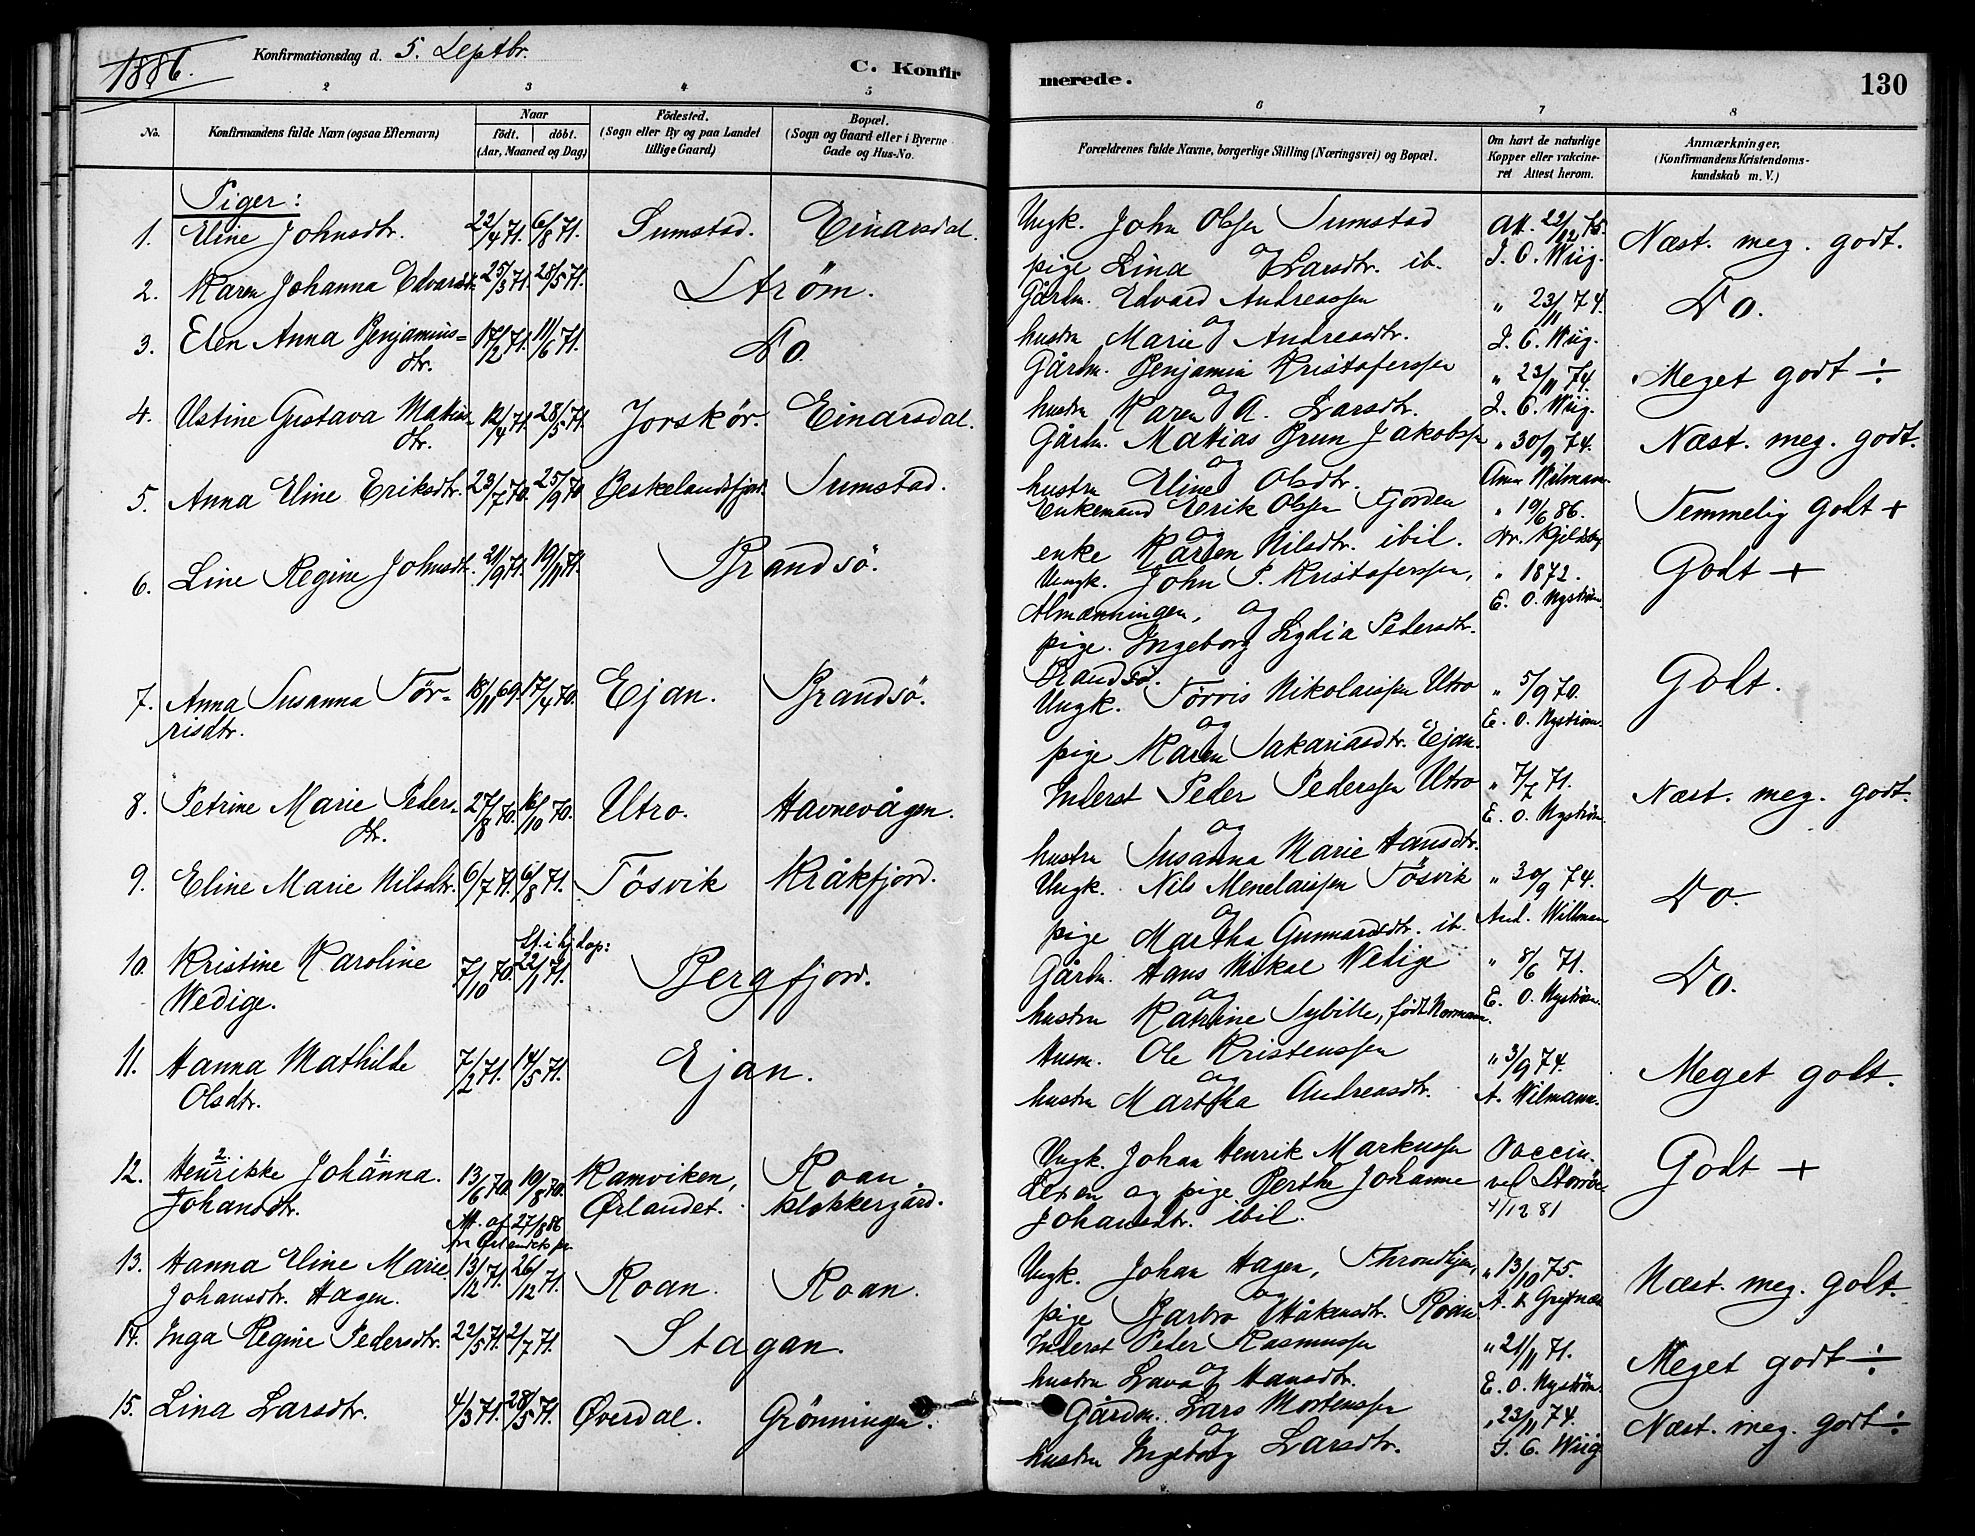 1886.
Konfirmationsdag d. 5. Septbr.
C. Konfir
merede.
130
2 3 4 5 6 7 8
No.
Konfirmandens fulde Navn (ogsaa Efternavn)
Naar
födt. döbt.
(Aar, Maaned og Dag)
Födested.
(Sogn eller By og paa Landet
tillige Gaard)
Bopæl.
(Sogn og Gaard eller i Byerne
Gade og Hus-No.
Forældrenes fulde Navne, borgerlige Stilling (Næringsvei) og Bopæl.
Om havt de naturlige
Kopper eller vakcine-
ret Attest herom.
Anmærkninger.
(Konfirmandens Kristendoms-
kundskab m. V.)
Piger:
1. Eline Johnsdtr. 22/4 71. 6/8 71. Sumstad. Einarsdal. Ungk. John Olsen Sumstad Att. 22/12 75. Næst. meg. godt.
og
pige Lina Larsdtr. ib. J. C. Wiig.
2. Karen Johanna Edvardsdtr. 25/3 71. 28/5 71. Strøm. Gårdm. Edvard Andreassen " 23/11 74. Do.
og
hustru Marie Andreasdtr. J. C. Wiig.
3. Elen Anna Benjamins- 17/2 71. 11/6 71. Do. Gårdm. Benjamin Kristofersen " 23/11 74. Meget godt ÷
dtr.
og
hustru Karen A. Larsdtr. J. C. Wiig.
4. Ustine Gustava Matias- 12/4 71. 28/5 71. Jorskör. Einarsdal. Gårdm. Matias Brun Jakobsen " 30/9 74. Næst. meg. godt.
dtr.
og
hustru Eline Olsdtr.
5. Anna Eline Eriksdtr. 23/7 70. 25/9 70 Beskelandsfjord. Sumstad. Enkemand Erik Olsen Fjorden " 19/6 86. Temmelig godt +
og
enke Karen Nilsdtr. ibil.
6. Line Regine Johnsdtr. 21/9 71. 19/11 71. Brandsö. Ungk. John P. Kristofersen, " 1872. Godt +
Almænningen, og E. O. Nyström.
pige. Ingeborg Lydia Pedersdtr.
Brandsö.
7. Anna Susanna Tör- 18/11 69. 17/4 70. Ejan. Brandsö. Ungk. Törris Nikolaissen Utro " 5/9 70. Godt.
risdtr. E. O. Nyström.
og
pige Karen Sakariasdtr. Ejan.
8. Petrine Marie Peders- 27/8 70. 16/10 70. Utro. Havnevågen. Inderst Peder Pedersen Utro " 7/7 71. Næst. meg. godt.
dtr. E. O. Nyström.
og
hustru Susanna Marie Hansdtr.
9. Eline Marie Nilsdtr. 6/7 71. 6/8 71. Tösvik Kråkfjord. Ungk. Nils Menelaissen Tösvik " 30/9 74. Do.
og
pige Martha Gunnardsdtr. ib. And. Willman
10. Kristine Karoline 7/10 70. 22/1 71. Bergfjord. Gårdm. Hans Mikal Wedige " 8/6 71. Do.
Wedige.
og
hustru Katrine Sybille, født Normann. E. O. Nyström.
11. Hanna Mathilde 7/2 71. 14/5 71. Ejan. Husm. Ole Kristenssen " 3/9 74. Meget godt.
Olsdtr.
og
hustru Martha Andreasdtr. A. Wilmann.
12. Henrikke Johanna. 13/6 70 19/8 70. Ramviken, Roan Ungk. Johan Henrik Markussen Vaccin. Godt +
2. 1
Johansdtr. Ørlandet. klokkergård. og pige Berthe Johanne
Att. af 27/8 86 Johansdtr. ibil. 4/12 81
fra Ørlandets pr.
13. Hanna Eline Marie 13/12 71. 26/12 71. Roan. Roan. Ungk. Johan Hagen, Throndhjem, " 13/10 75. Næst. meg. godt.
Johansdtr. Hagen.
og
pige Barbro Håkensdtr. Roan
14. Inga Regine Pedersdtr. 22/5 71. 2/7 71. Stagan. Inderst Peder Rasmussen " 21/11 71. Meget godt ÷
og
hustru Lava Hansdtr. E. O. Nyström.
15. Lina Larsdtr. 4/3 71. 28/5 71. Øverdal. Grönningen. Gårdm. Lars Mortenssen " 23/11 74. Næst. meg. godt ÷
og
hustru Ingeborg Larsdtr. J. C. Wiig